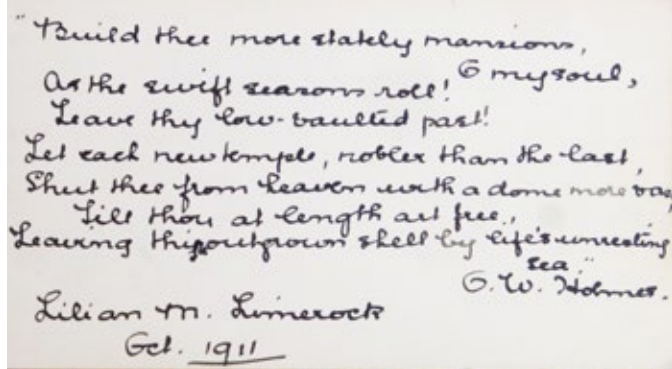 "Build thee more stately mansions,
O my soul,
As the swift seasons roll!
Leave thy low-vaulted past!
Let each new temple, nobler than the last,
Shut thee from heaven with a dome more vas
Till thou at length art free,
Leaving thine outgrown shell by life's unresting
sea."
O. W. Holmes.
Lilian M. Limerock
Oct. 1911